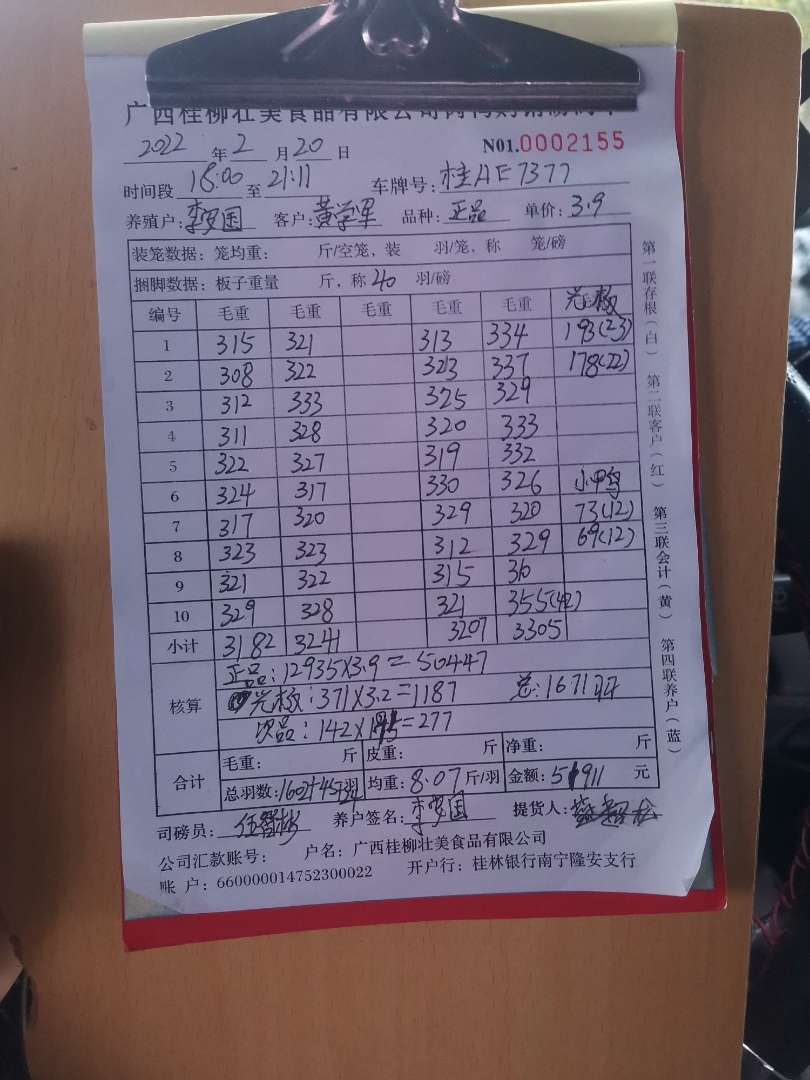 广西桂柳壮美食品有限公司
2022 年 2 月 20 日 N01.0002155
时间段 18:00 至 21:11 车牌号: 桂AE7377
养殖户: 李罗国 客户: 黄学军 品种: 正品 单价: 3.9
装笼数据: 笼均重: 斤/空笼, 装 羽/笼, 称 笼/磅
捆脚数据: 板子重量 斤, 称 40 羽/磅
编号 毛重 毛重 毛重 毛重 毛重 光板
1 315 321 313 334 193(23)
2 308 322 323 337 178(22)
3 312 333 325 329
4 311 328 320 333
5 322 327 319 332
6 324 317 330 326 小鸭
7 317 320 329 320 73(12)
8 323 323 312 329 69(12)
9 321 322 315 310
10 329 328 321 355(42)
小计 3182 3241 3207 3305
核算 正品: 12935×3.9=50447
光板: 371×3.2=1187 总: 1671羽
次品: 142×1.95=277
合计 毛重: 斤 皮重: 斤 净重: 斤
总羽数: 1602+45羽 均重: 8.07 斤/羽 金额: 51911 元
司磅员: 养户签名: 李罗国 提货人:
公司汇款账号: 户名: 广西桂柳壮美食品有限公司
账 户: 660000014752300022 开户行: 桂林银行南宁隆安支行
第一联存根(白) 第二联客户(红) 第三联会计(黄) 第四联养户(蓝)